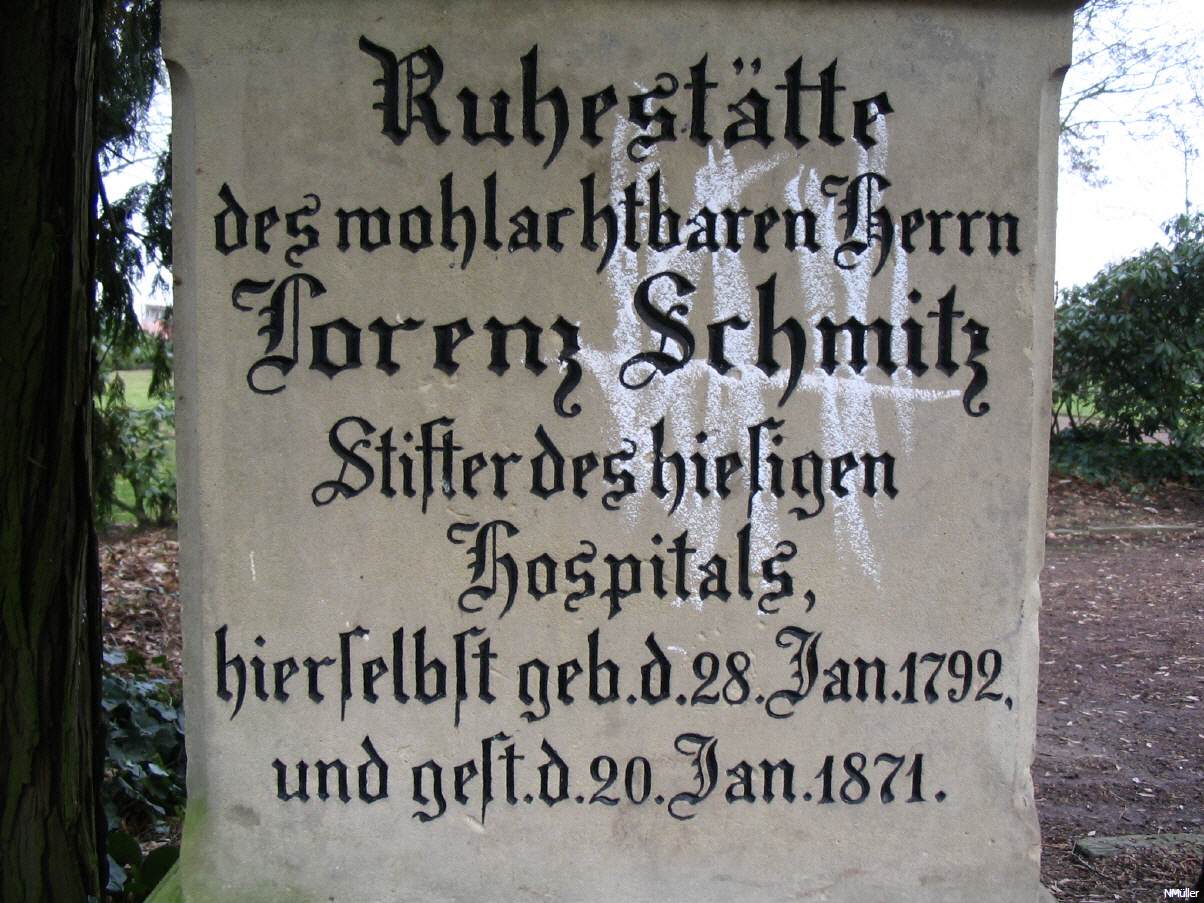 Ruhestätte
des wohlachtbaren Herrn
Lorenz Schmitz
Stifter des hiesigen
Hospitals,
hierselbst geb. d. 28. Jan. 1792,
und gest. d. 20. Jan. 1871.
NMüller